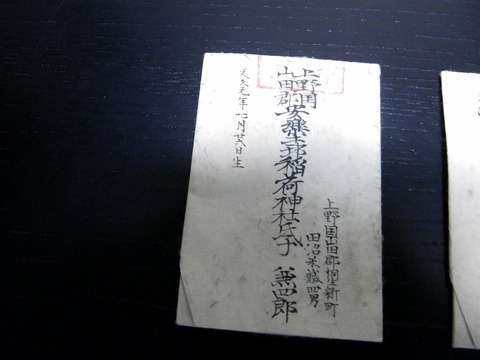 上野国山田郡桐生新町
田沼米蔵四男
上野国
山田郡
安楽土邨稲荷神社氏子 兼四郎
文久元年七月廿六日生